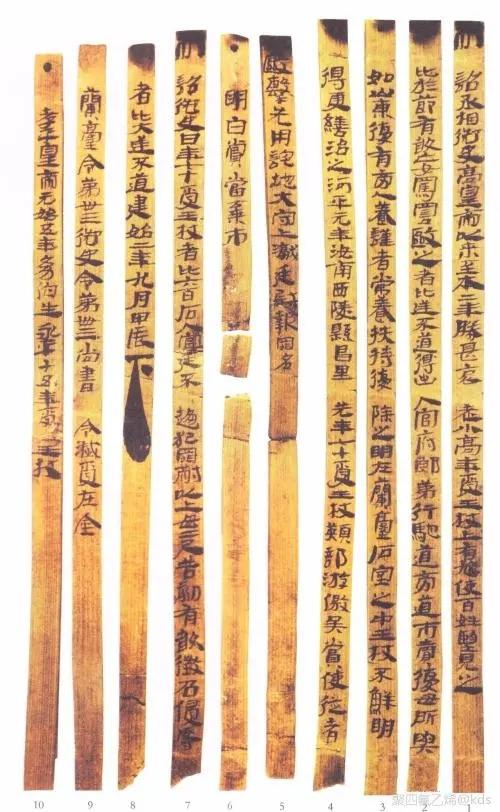 制詔丞相御史高皇帝以來至本二年勝甚哀老小高年受王杖上有鳩使百姓望見之
比於節有敢妄罵詈毆之者比逆不道得出入官府郎第行馳道旁道市賣復毋所與
如山東復有旁人養謹者常養扶持復除之明在蘭臺石室之中王杖不鮮明
得更繕治之河平元年汝南西陵縣昌里先年七十受王杖熲部游徼吳賞使從者
毆擊先用詫地大守上讞廷尉報罪名
明白賞當棄市
制詔御史曰年七十受王杖者比六百石入官廷不趨犯罪耐以上毋二尺告劾有敢徵召侵辱
者比大逆不道建始二年九月甲辰下
蘭臺令第卅三御史令第卌三尚書令滅受在金
孝平皇帝元始五年幼伯生永平十五年受王杖
10 9 8 7 6 5 4 3 2 1
聚四氟乙烯@kds